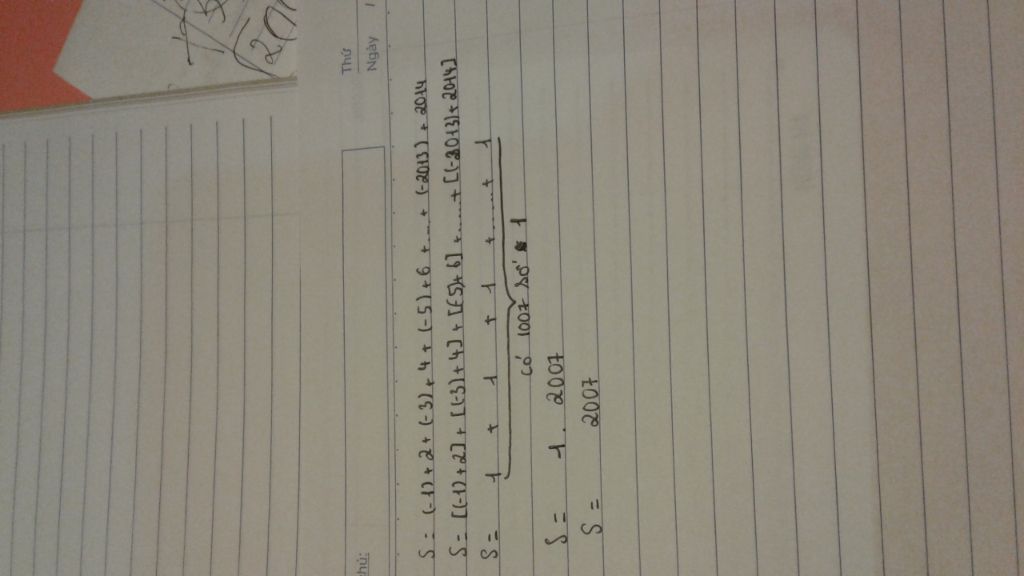 Thứ
Ngày
hú:
S = (-1) + 2 + (-3) + 4 + (-5) + 6 + ... + (-2013) + 2014
S = [(-1) + 2] + [(-3) + 4] + [(-5) + 6] + ..... + [(-2013) + 2014]
S = 1 + 1 + 1 + ...... + 1
có 1007 số 1
S = 1 . 2007
S = 2007